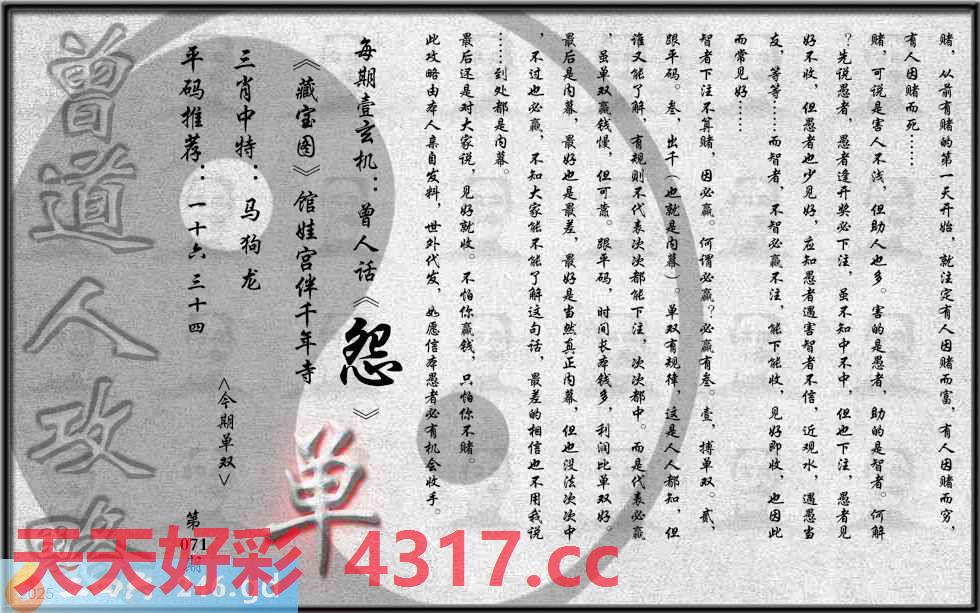 赌，从前有赌的第一天开始，就注定有人因赌而富，有人因赌而穷，
有人因赌而死……
赌，可说是害人不浅，但助人也多。害的是愚者，助的是智者。何解
？先说愚者，愚者逢开奖必下注，虽不知中不中，但也下注，愚者见
好不收，但愚者也少见好，应知愚者遇害智者不信，近观水，遇愚当
友，等等……而智者，不智必赢不注，能下能收，见好即收，也因此
而常见好……
智者下注不算赌，因必赢。何谓必赢？必赢有叁。壹，搏单双。贰，
跟平码。叁，出千（也就是内幕）。单双有规律，这是人人都知，但
谁又能了解，有规则不代表次次都能下注，次次都中。而是代表必赢
，虽单双赢钱慢，但可靠。跟平码，时间长本钱多，利润比单双好。
最后是内幕，最好也是最差，最好是当然真正内幕，但也没法次次中
，不过也必赢，不知大家能不能了解这句话，最差的相信也不用我说
……到处都是内幕。
最后还是对大家说，见好就收。不怕你赢钱，只怕你不赌。
此攻略由本人亲自发料，世外代发，如愿信本愚者必有机会收手。
每期壹玄机：曾人话《怨》
《藏宝图》馆娃宫伴千年寺
三肖中特：马狗龙
平码推荐：一十六 三十四
<今期单双>
单
第071期
曾道人攻略
天天好彩 4317.cc
246.gd
2025